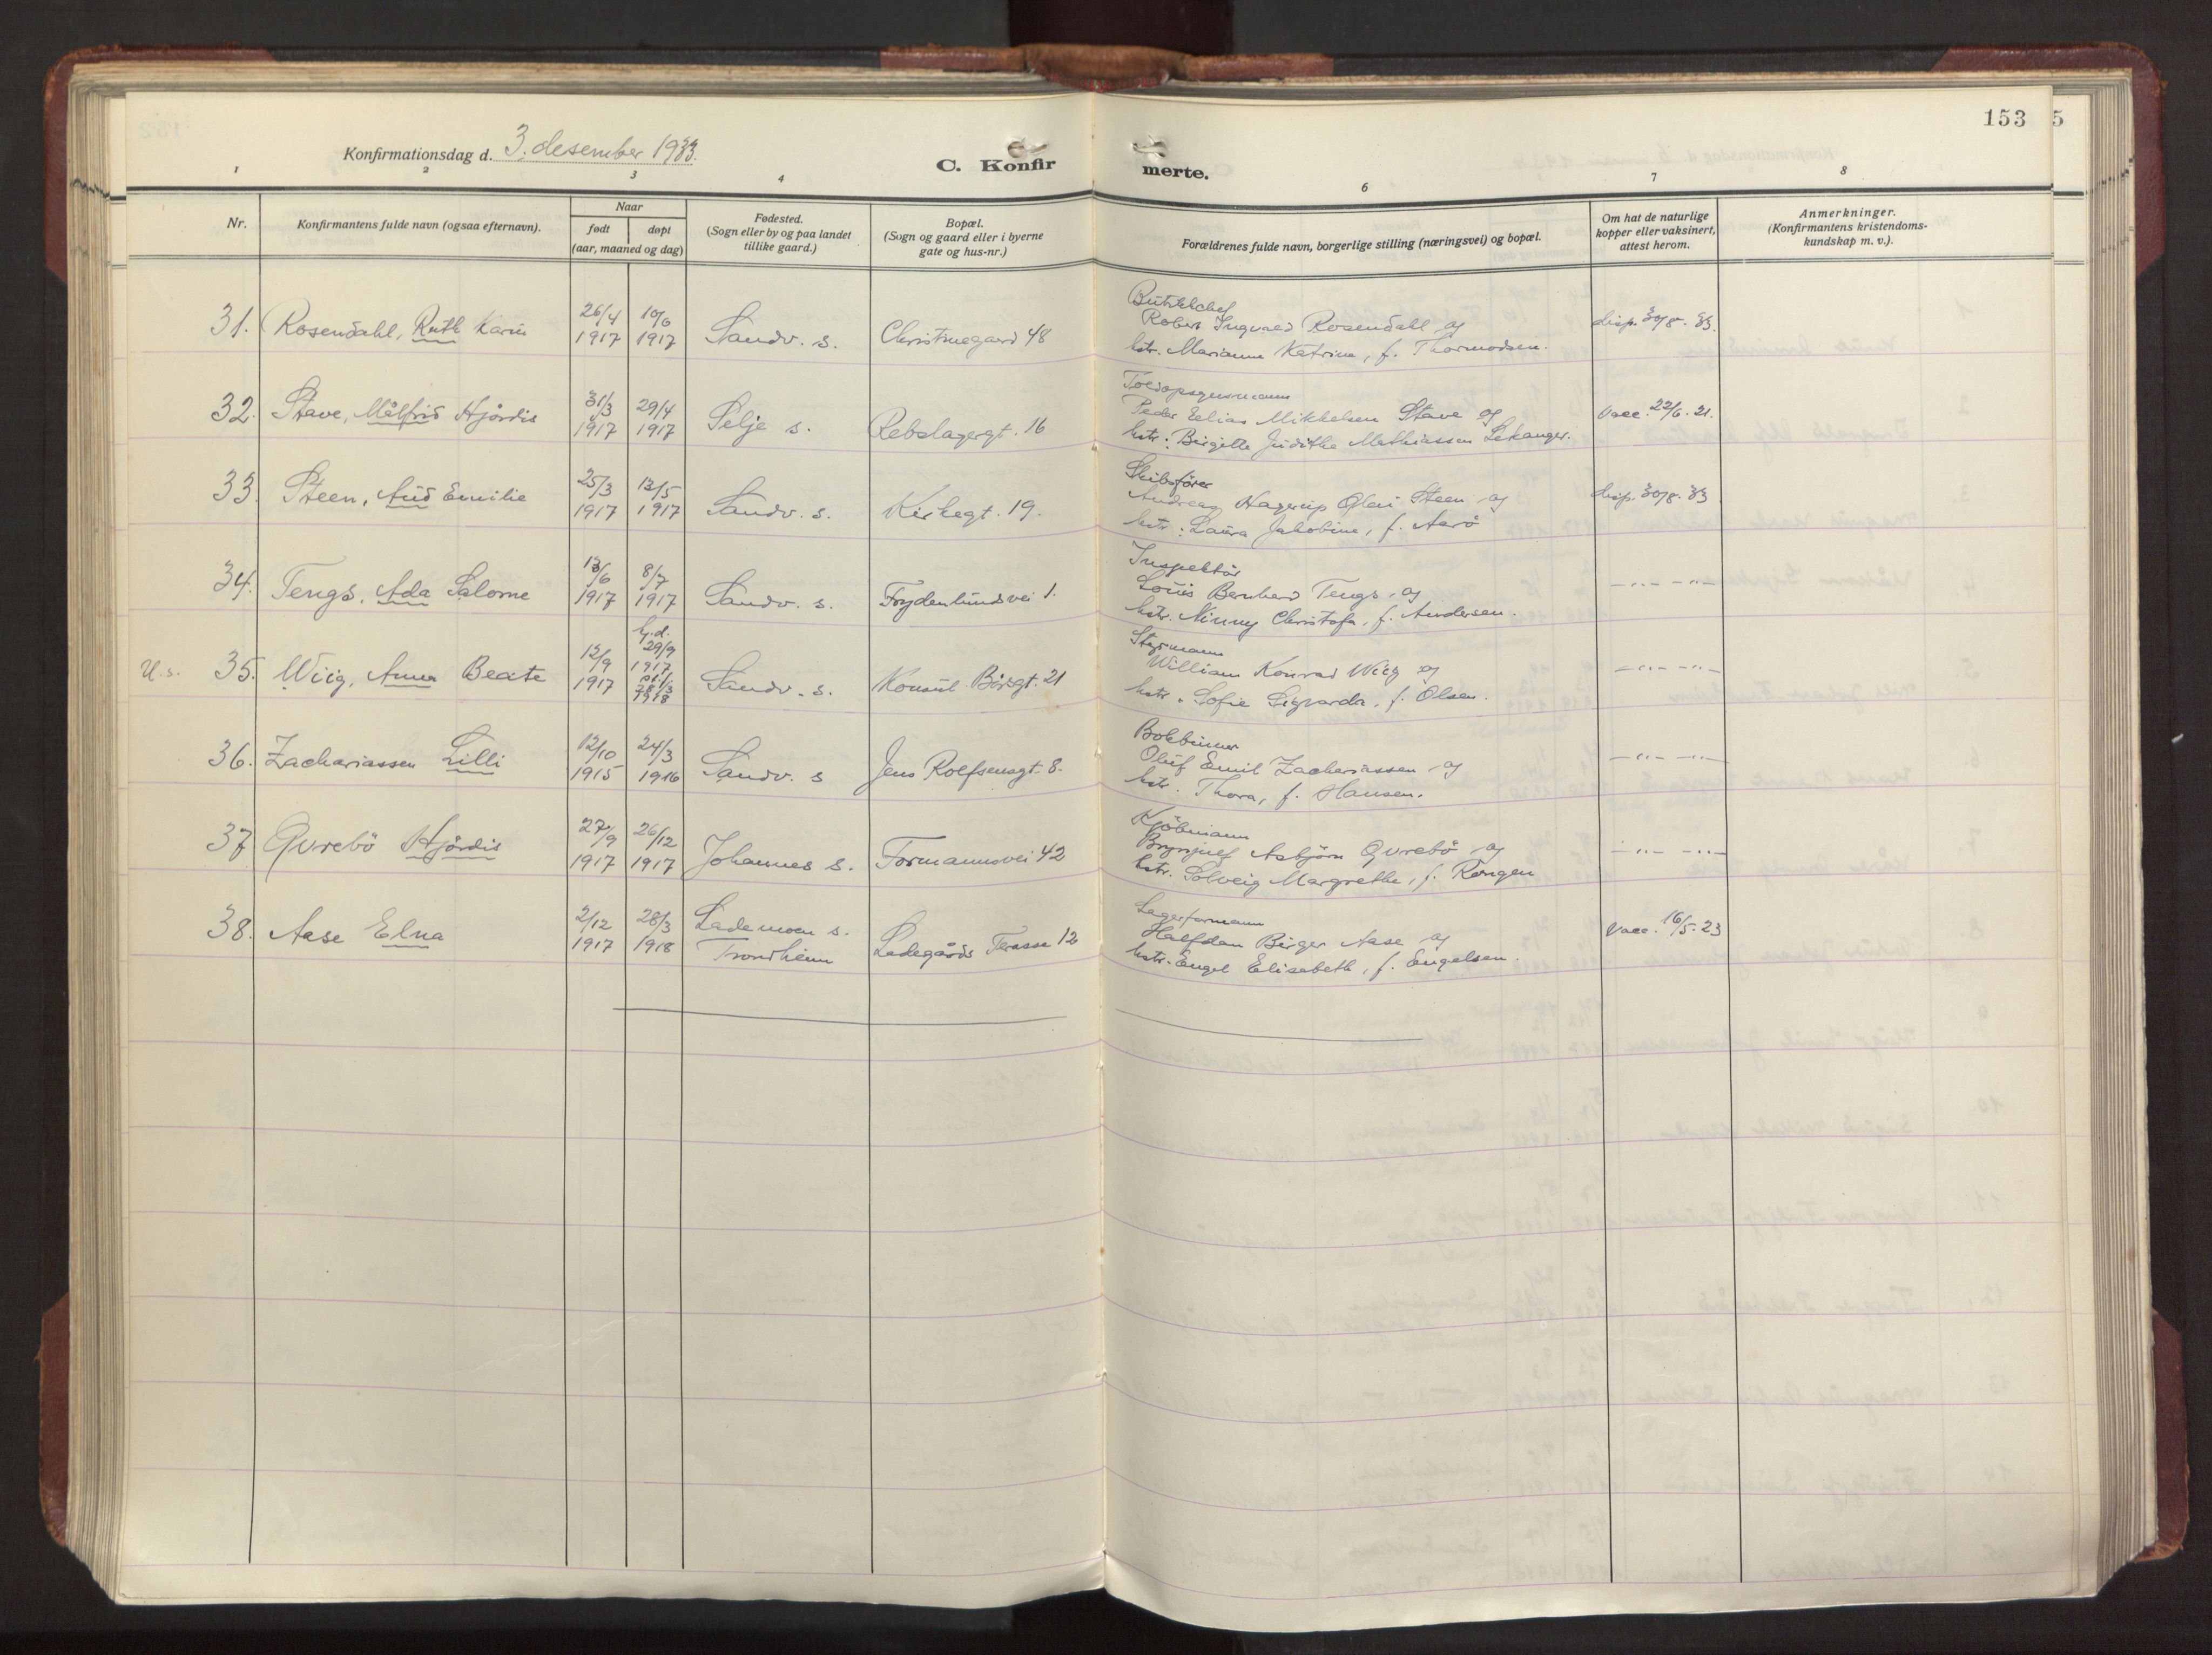 153
5
Konfirmationsdag d. 3. desember 1933.
C. Konfirmerte.
1 2 3 4 6 7 8
Nr.
Konfirmantens fulde navn (ogsaa efternavn).
Naar
født døpt
(aar, maaned og dag)
Fødested.
(Sogn eller by og paa landet
tillike gaard.)
Bopæl.
(Sogn og gaard eller i byerne
gate og hus-nr.)
Forældrenes fulde navn, borgerlige stilling (næringsvei) og bopæl.
Om hat de naturlige
kopper eller vaksinert,
attest herom.
Anmerkninger.
(Konfirmantens kristendoms-
kundskap m. v.).
31. Rosendahl, Ruth Karin
26/4 1917
10/6 1917
Sandv. s.
Christinegaard 48
Robert Ingvald Rosendahl og
hstr. Marianne Katrine, f. Thormodsen.
disp. 30/8. 33.
32. Stave, Målfrid Hjördis
31/3 1917
29/4 1917
Selje s.
Rebslagergt. 16
Toldopsynsmann
Peder Elias Mikkelsen Stave og
hstr: Birgitte Juditha Mathiassen Lekanger.
Vacc. 22/6. 21.
33. Steen, Aud Emilie
25/3 1917
13/5 1917
Sandv. s.
Kirkegt. 19.
Skibsfører
Andreas Hagerup Olai Steen og
hstr: Laura Jakobine, f. Aarö
disp. 30/8. 33
34. Tengs, Ada Salome
13/6 1917
8/7 1917
Sandv. s.
Frydenlundsvei 1.
Inspektör
Louis Bernhard Tengs, og
hstr. Minny Christofa, f. Andersen.
—„— —„—
U.s. 35. Wiig, Anna Beate
12/9 1917
hj.d. 29/9 1917
1918
Sandv. s.
Konsul Börsgt. 21
Styrmann
William Konrad Wiig og
hstr. Sofie Sigvarda, f. Olsen.
—„— —„—
36. Zachariassen Lilli
12/10 1915
24/3 1916
Sandv. s
Jens Rolfsensgt. 8.
Bokbinner
Oluf Emil Zachariassen og
hstr. Thora, f. Hansen.
—„— —„—
37 Qvrebö Hjördis
27/9 1917
26/12 1917
Johannes s.
Formannsvei 42
Kjöbmann
Brynjulf Asbjörn Qvrebö og
hstr. Solveig Margrethe, f. Rongen
—„— —„—
38. Aase Elna
2/12 1917
28/3 1918
Lademoen s.
Trondheim
Ladegårds Terasse 12
Lagerformann
Halfdan Birger Aase og
hstr. Engel Elisabeth, f. Engelsen.
Vacc. 16/5. 23